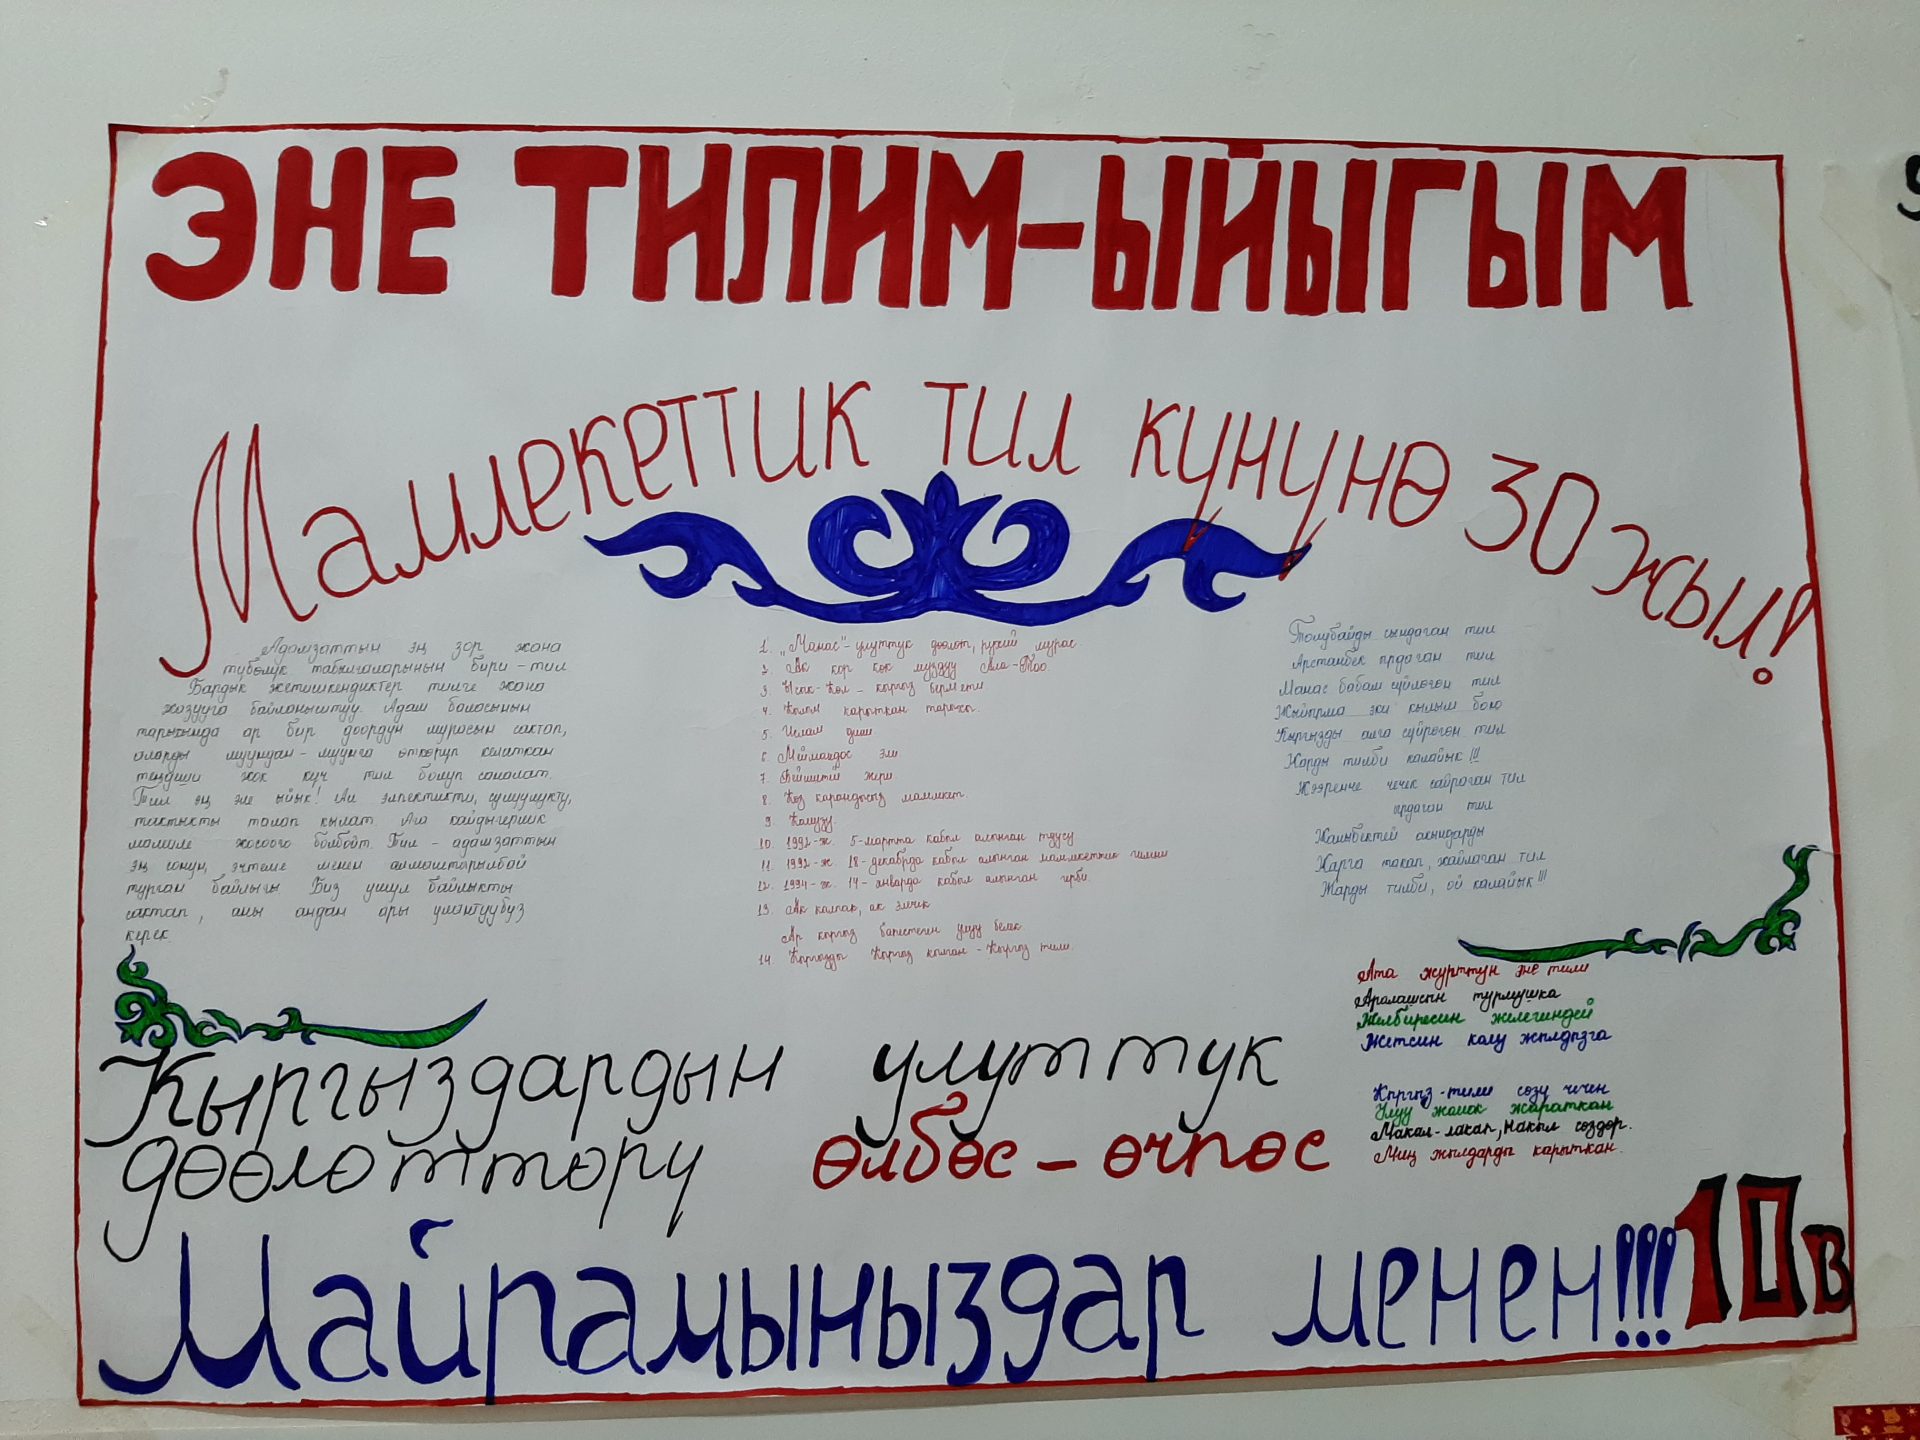 ЭНЕ ТИЛИМ-ЫЙЫГЫМ
Мамлекеттик тил күнүнө 30 жыл!
Адамзаттын эң зор жана
түбөлүк табылгаларынын бири - тил
Бардык жетишкендиктер тилге жана
жазууга байланыштуу. Адам баласынын
тарыхында ар бир доордун мурасын сактап,
аларды муундан - муунга өткөрүп келаткан
теңдеши жок күч тил болуп саналат.
Тил эң эле ыйык! Ал элпектикти, сушуулукту,
тактыкты талап кылат. Ага кайдыгерлик
мамиле жасоого болбойт. Тил - адамзаттын
эң сонун, эчтеме менен алмаштырылбай
турган байлыгы Биз ушул байлыкты
сактап, аны андан ары улантуубуз
керек.
1. "Манас"- улуттук дөөлөт, рухий мурас.
2. Ак кар көк муздуу Ала-Тоо.
3. Ысык-Көл - кыргыз бермети
4. Кылым карыткан тарыхы.
5. Ислам дини
6. Меймандос эли
7. Бейиштей жери.
8. Көз карандысыз мамлекет.
9. Комузу.
10. 1992-ж. 5-мартта кабыл алынган туусу
11. 1992-ж. 18-декабрда кабыл алынган мамлекеттик гимни
12. 1994-ж. 14-январда кабыл алынган герби.
13. Ак калпак, ак элечек
Ар кыргыз бапестеген улуу белек.
14. Кыргызды Кыргыз кылган - Кыргыз тили.
Толубайды сындаган тил
Арстанбек ырдаган тил
Манас бабам сүйлөгөн тил
Жыйырма эки кылым бою
Кыргызды алга сүйрөгөн тил
Жарды тилби калайык !!!
Жээренче чечен сайраган тил
ырдаган тил
Жаныбектей акындарды
Жарга такап, жайлаган тил
Жарды тилби, ой калайык!!!
Ата журттун эне тили
Аралашсын турмушка
Желбиресин желегиндей
Жетсин колу жылдызга
Кыргыз-тили сөзү чечен
Улуу жолок жараткан
Макал-лакап, накыл сөздөр.
Миң жылдарды карыткан.
Кыргыздардын улуттук
дөөлөттөрү өлбөс - өчпөс
Майрамыныздар менен!!!
10в